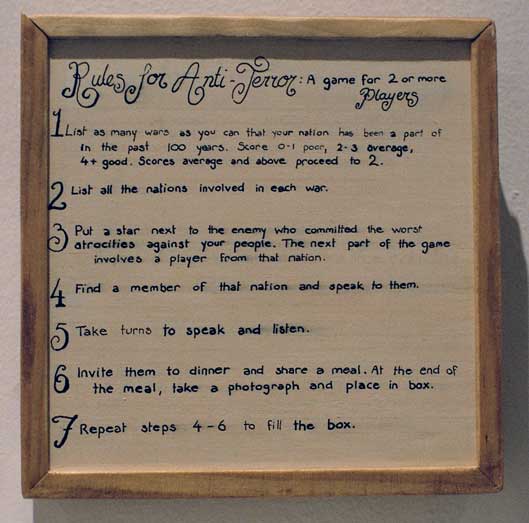 Rules for Anti-Terror: A game for 2 or more
Players
1 List as many wars as you can that your nation has been a part of
in the past 100 years. Score 0-1 poor, 2-3 average,
4+ good. Scores average and above proceed to 2.
2 List all the nations involved in each war.
3 Put a star next to the enemy who committed the worst
atrocities against your people. The next part of the game
involves a player from that nation.
4 Find a member of that nation and speak to them.
5 Take turns to speak and listen.
6 Invite them to dinner and share a meal. At the end of
the meal, take a photograph and place in box.
7 Repeat steps 4-6 to fill the box.